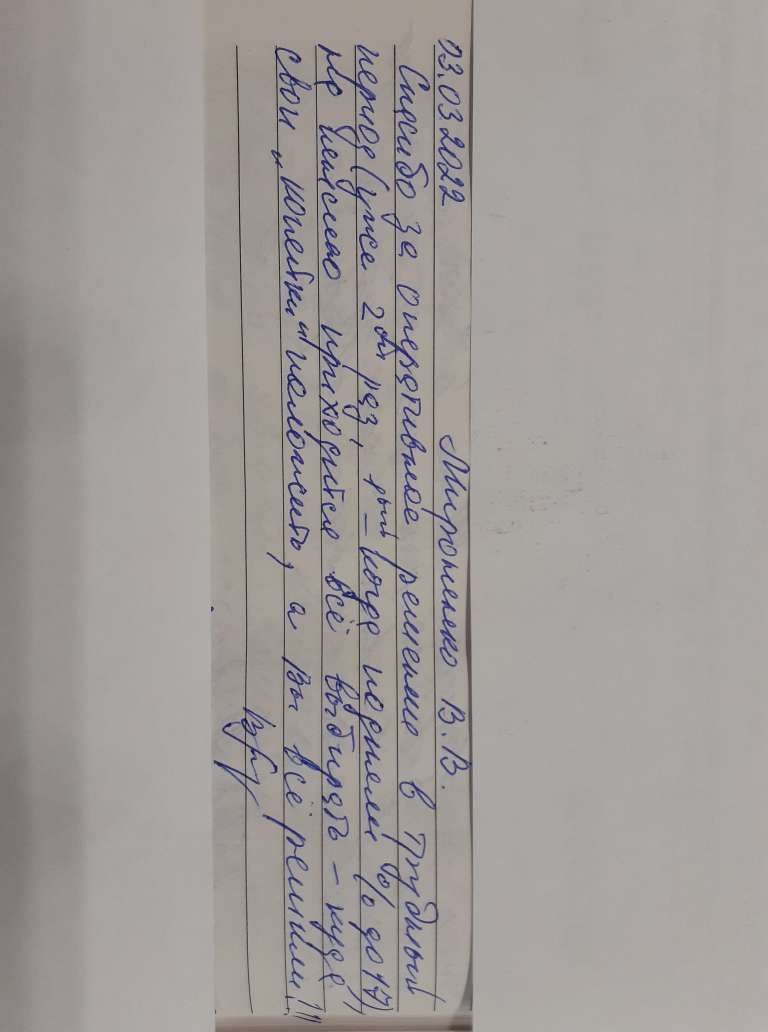 03.03.2022 Мироненко В.В.
Спасибо за оперативное решение в трудный
период (уже 2ой раз, 1ый – когда подняли % до 17)
Не приходится всё выбирать – куда
свои "копейки" положить, а Вы всё решили!!!